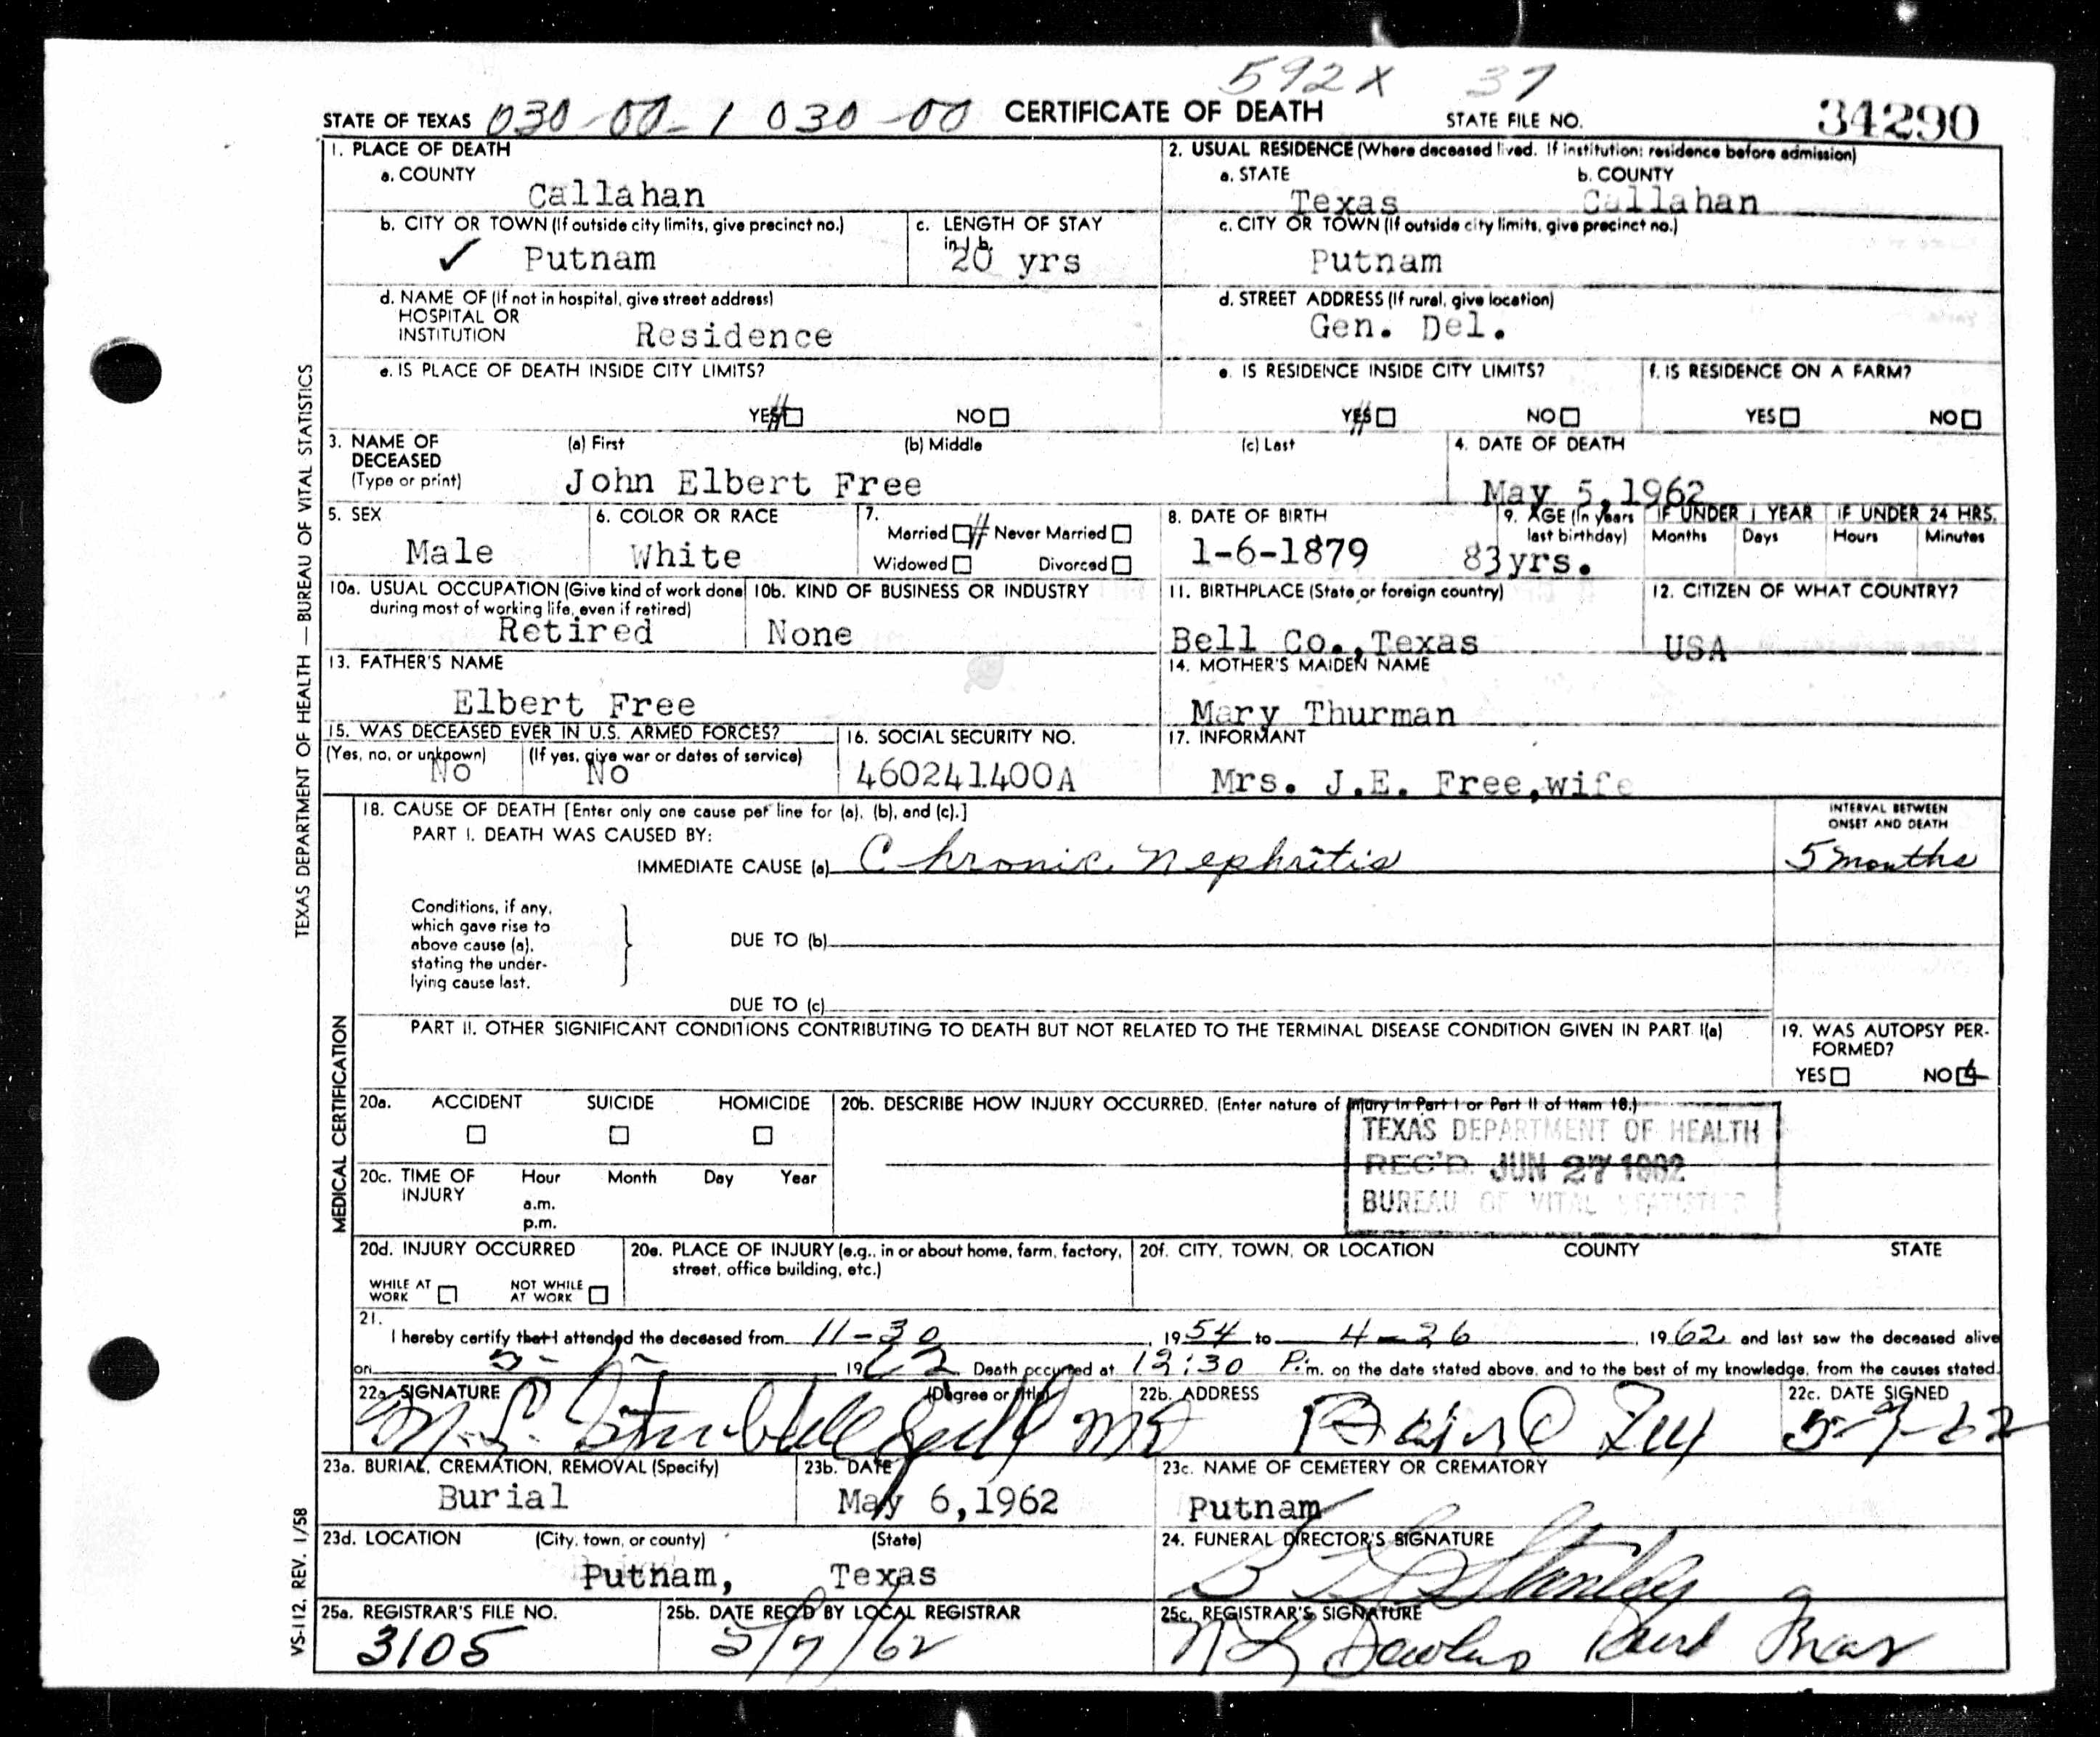 592X 37
STATE OF TEXAS 030-00-1 030-00 CERTIFICATE OF DEATH STATE FILE NO. 34290
1. PLACE OF DEATH
a. COUNTY
Callahan
2. USUAL RESIDENCE (Where deceased lived. If institution: residence before admission)
a. STATE b. COUNTY
Texas Callahan
b. CITY OR TOWN (If outside city limits, give precinct no.)
✓ Putnam
c. LENGTH OF STAY
in 1 b.
20 yrs
c. CITY OR TOWN (If outside city limits, give precinct no.)
Putnam
d. NAME OF (If not in hospital, give street address)
HOSPITAL OR
INSTITUTION Residence
d. STREET ADDRESS (If rural, give location)
Gen. Del.
e. IS PLACE OF DEATH INSIDE CITY LIMITS?
YES NO
e. IS RESIDENCE INSIDE CITY LIMITS?
YES NO
f. IS RESIDENCE ON A FARM?
YES NO
3. NAME OF
DECEASED
(Type or print)
(a) First (b) Middle (c) Last
John Elbert Free
4. DATE OF DEATH
May 5,1962
5. SEX
Male
6. COLOR OR RACE
White
7.
Married Never Married
Widowed Divorced
8. DATE OF BIRTH
1-6-1879
9. AGE (In years
last birthday)
83yrs.
IF UNDER 1 YEAR
Months Days
IF UNDER 24 HRS.
Hours Minutes
10a. USUAL OCCUPATION (Give kind of work done
during most of working life, even if retired)
Retired
10b. KIND OF BUSINESS OR INDUSTRY
None
11. BIRTHPLACE (State or foreign country)
Bell Co.,Texas
12. CITIZEN OF WHAT COUNTRY?
USA
13. FATHER'S NAME
Elbert Free
14. MOTHER'S MAIDEN NAME
Mary Thurman
15. WAS DECEASED EVER IN U.S. ARMED FORCES?
(Yes, no, or unknown) (If yes, give war or dates of service)
No No
16. SOCIAL SECURITY NO.
460241400A
17. INFORMANT
Mrs. J.E. Free,wife
18. CAUSE OF DEATH [Enter only one cause per line for (a), (b), and (c).]
PART I. DEATH WAS CAUSED BY:
IMMEDIATE CAUSE (a) Chronic Nephritis
INTERVAL BETWEEN
ONSET AND DEATH
5 months
Conditions, if any,
which gave rise to
above cause (a),
stating the under-
lying cause last.
DUE TO (b)
DUE TO (c)
PART II. OTHER SIGNIFICANT CONDITIONS CONTRIBUTING TO DEATH BUT NOT RELATED TO THE TERMINAL DISEASE CONDITION GIVEN IN PART I(a)
19. WAS AUTOPSY PER-
FORMED?
YES NO
20a. ACCIDENT SUICIDE HOMICIDE
20b. DESCRIBE HOW INJURY OCCURRED. (Enter nature of injury in Part I or Part II of Item 18.)
TEXAS DEPARTMENT OF HEALTH
REC'D. JUN 27 1962
BUREAU OF VITAL STATISTICS
20c. TIME OF
INJURY
Hour Month Day Year
a.m.
p.m.
20d. INJURY OCCURRED
WHILE AT
WORK
NOT WHILE
AT WORK
20e. PLACE OF INJURY (e.g., in or about home, farm, factory,
street, office building, etc.)
20f. CITY, TOWN, OR LOCATION COUNTY STATE
21.
I hereby certify that I attended the deceased from 11-30, 1954 to 4-26, 1962 and last saw the deceased alive
on 5- 1962 Death occurred at 12:30 P.m. on the date stated above, and to the best of my knowledge, from the causes stated.
22a. SIGNATURE (Degree or title)
M.L. Stubblefield MD
22b. ADDRESS
Baird Tex
22c. DATE SIGNED
5-7-62
23a. BURIAL, CREMATION, REMOVAL (Specify)
Burial
23b. DATE
May 6,1962
23c. NAME OF CEMETERY OR CREMATORY
Putnam
23d. LOCATION (City, town, or county) (State)
Putnam, Texas
24. FUNERAL DIRECTOR'S SIGNATURE
25a. REGISTRAR'S FILE NO.
3105
25b. DATE REC'D BY LOCAL REGISTRAR
5/7/62
25c. REGISTRAR'S SIGNATURE
TEXAS DEPARTMENT OF HEALTH — BUREAU OF VITAL STATISTICS
MEDICAL CERTIFICATION
VS-112, REV. 1/58